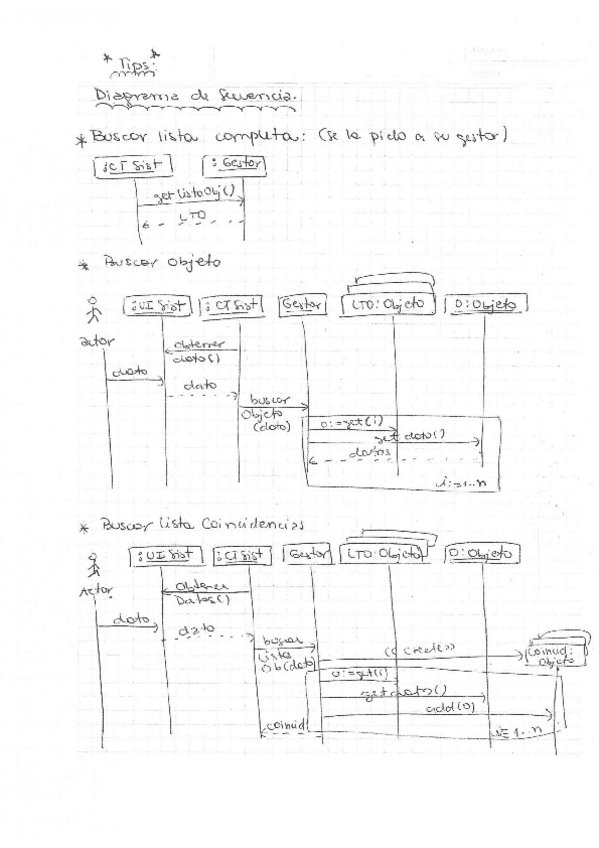 * Tips: *
Diagrama de Secuencia.
* Buscar lista completa: (se le pido a su gestor)
:CT Sist : Gestor
getListaObj()
LTO
* Buscar objeto
:UI Sist : CT Sist Gestor LTO: Objeto O: Objeto
actor
obtener
dato()
dato
dato
buscar
Objeto
(dato)
o:=get(i)
get dato()
datos
i:=1..n
* Buscar lista Coincidencias
:UI Sist :CT Sist Gestor LTO: Objeto O: Objeto
Actor
Obtener
Datos()
dato
dato
buscar
Lista
Ob(dato)
<<create>>
Coincid:
Objeto
o:=get(i)
getdatos()
add(O)
coincid
i=1..n